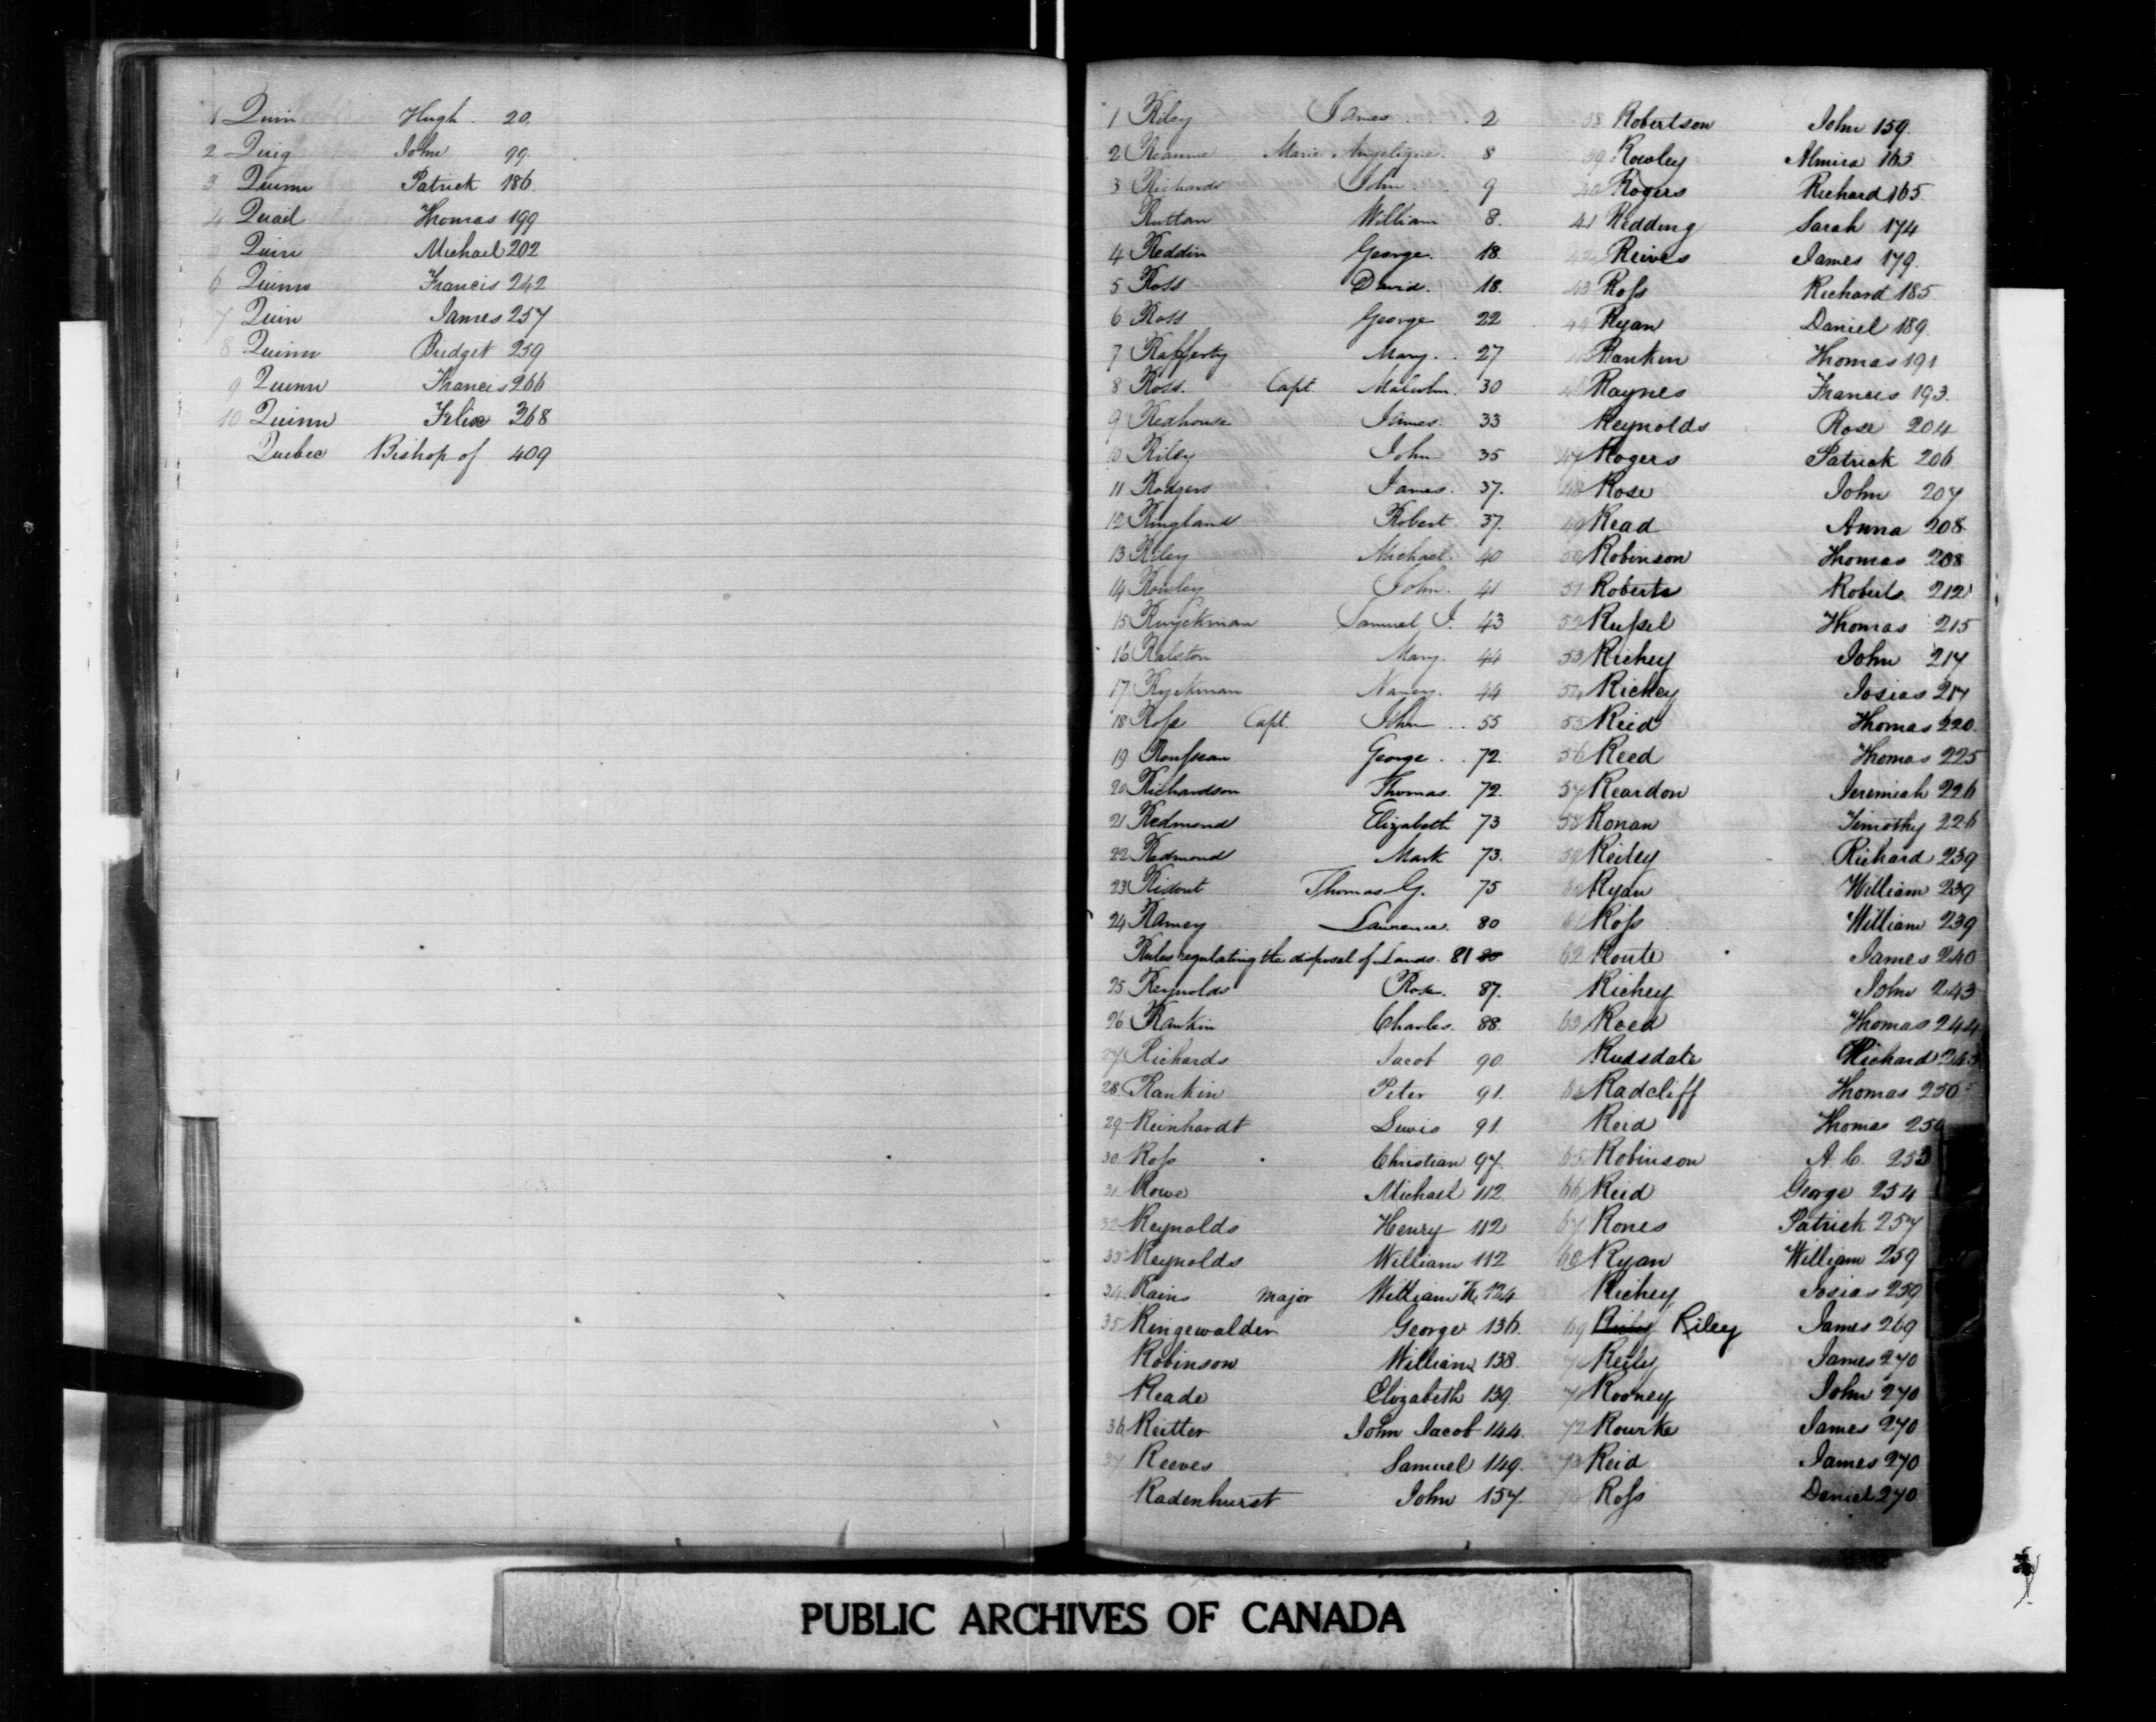 1 Quin Hugh. 20.
2 Quig John 99
3 Quinn Patrick 186.
4 Quail Thomas 199
5 Quin Michael 202
6 Quinn Francis 242
7 Quin James 257
8 Quinn Bridget 259
9 Quinn Francis 266
10 Quinn Felix 368
Quebec Bishop of 409
1 Riley James. 2
2 Reaume Marie Angelique. 8
3 Richards John. 9
Ruttan William 8.
4 Reddin George. 18.
5 Ross David. 18.
6 Ross George 22
7 Rafferty Mary. 27
8 Ross. Capt. Malcolm. 30
9 Redhouse James. 33
10 Riley John 35
11 Rodgers James. 37.
12 Ringland Robert 37.
13 Riley Michael. 40
14 Rowley John. 41
15 Ruyckman Samuel I. 43
16 Ralston Mary. 44
17 Ryckman Nancy. 44
18 Roſs Capt. John 55
19 Rouſseau George. 72.
20 Richardson Thomas. 72.
21 Redmond Elizabeth 73
22 Redmond Mark 73.
23 Ridout Thomas G. 75
24 Ramey Lawrence. 80
Rules regulating the disposal of Lands. 81 80
25 Reynolds Rose. 87.
26 Rankin Charles. 88.
27 Richards Jacob 90
28 Rankin Peter 91.
29 Reinhardt Lewis 91
30 Roſs Christian 97.
31 Rowe Michael 112
32 Reynolds Henry 112
33 Reynolds William 112
34 Rains Major William K. 124
35 Ringewalder George 136.
Robinson William 138.
Reade Elizabeth 139.
36 Reitter John Jacob 144.
37 Reeves Samuel 149.
Radenhurst John 157.
38 Robertson John 159.
39 Rowley Almira 163
40 Rogers Richard 165
41 Redding Sarah 174
42 Reives James 179.
43 Roſs Richard 185
44 Ryan Daniel 189.
45 Rankin Thomas 191
46 Raynes Francis 193.
Reynolds Rose 204
47 Rogers Patrick 206
48 Rose John 207
49 Read Anna 208
50 Robinson Thomas 208
51 Roberts Robert 212
52 Ruſsel Thomas 215
53 Richey John 217
54 Richey Josias 217
55 Reid Thomas 220.
56 Reed Thomas 225
57 Reardon Jeremiah 226
58 Ronan Timothy 226
59 Reiley Richard 239
60 Ryan William 239
61 Roſs William 239
62 Route James 240
Richey John 243
63 Roed Thomas 244
Rudsdale Richard
64 Radcliff Thomas 250
Reid Thomas
65 Robinson A. C. 253
66 Reid George 254
67 Rones Patrick 257
68 Ryan William 259
Richey Josias 259
69 Riley James 269
70 Reily James 270
71 Rooney John 270
72 Rourke James 270
73 Reid James 270
74 Roſs Daniel 270
PUBLIC ARCHIVES OF CANADA